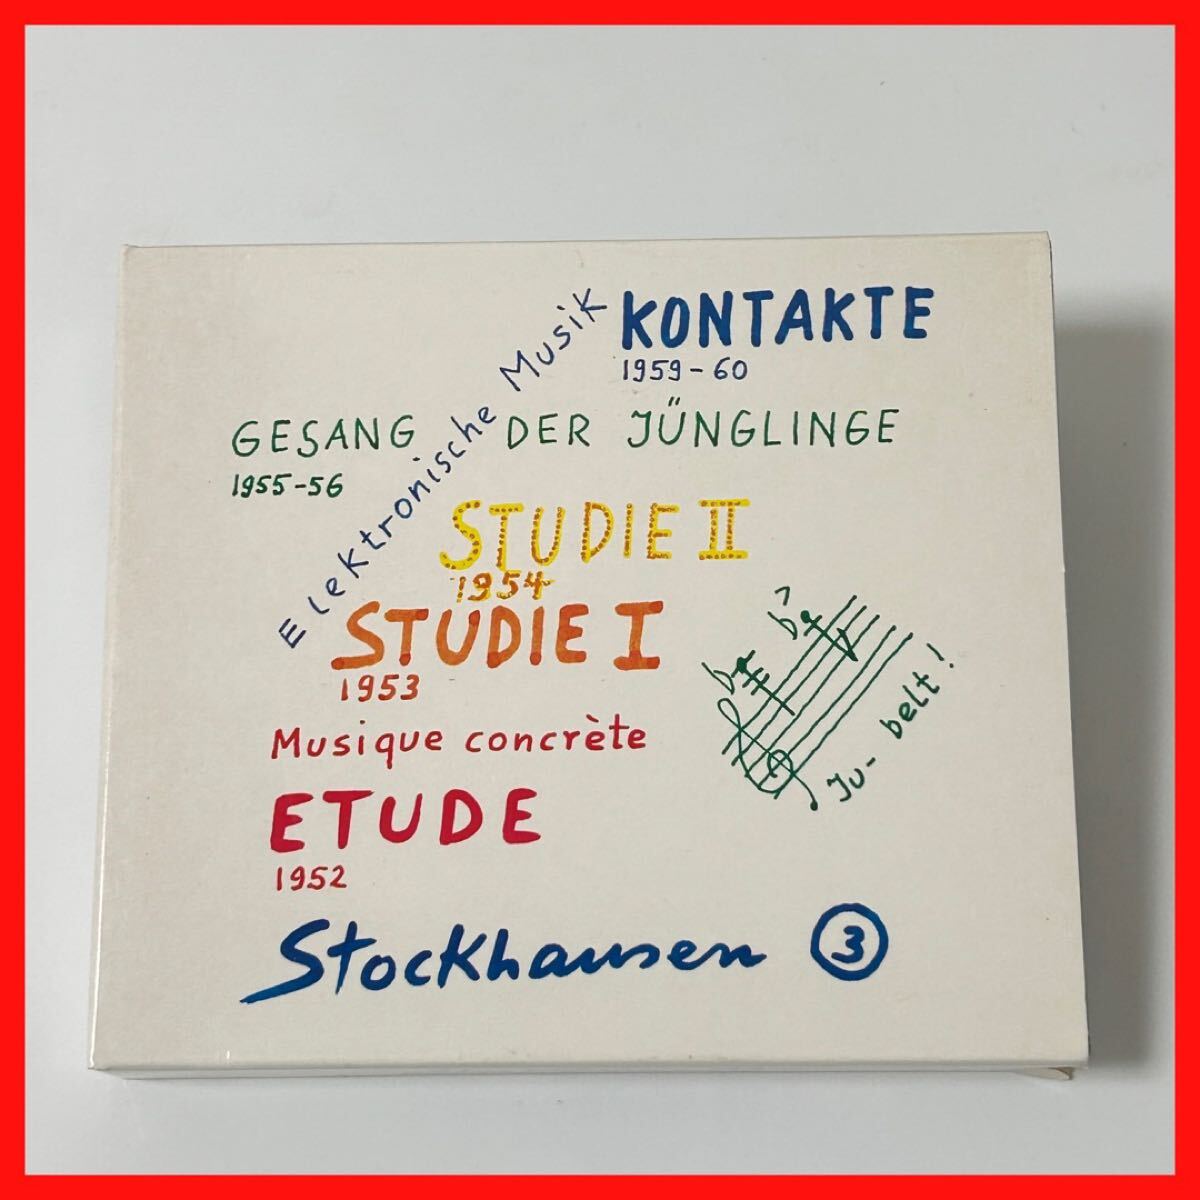 Elektronische Musik
KONTAKTE
1959-60
GESANG DER JÜNGLINGE
1955-56
STUDIE II
1954
STUDIE I
1953
Musique concrète
ETUDE
1952
Ju- belt!
Stockhausen 3